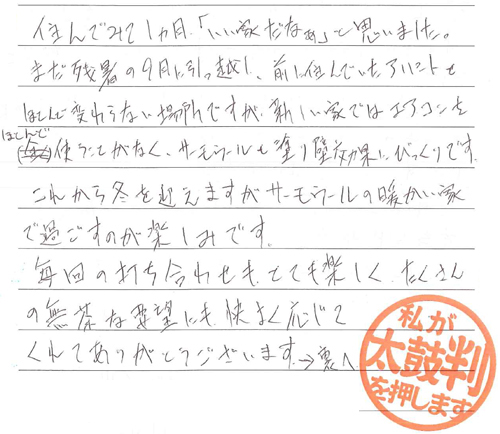 住んでみて1ヵ月、「いい家だなぁ」と思いました。
まだ残暑の9月に引っ越し、前に住んでいたアパートと
ほとんど変わらない場所ですが、新しい家ではエアコンを
ほとんど
使うことがなく、サーモウールと塗り壁効果にびっくりです。
これから冬を迎えますがサーモウールの暖かい家
で過ごすのが楽しみです。
毎回の打ち合わせも、とても楽しく、たくさん
の無茶な要望にも、快よく応じて
くれてありがとうございます。→裏へ
私が
太鼓判
を押します